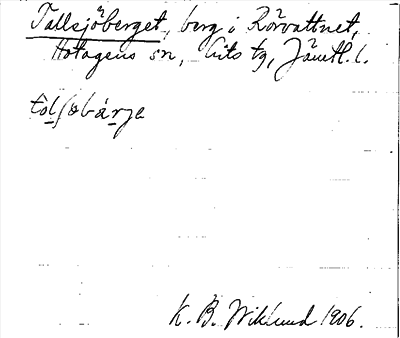 Tallsjöberget, berg i Rörvattnet,
Hotagens sn, Lits tg, Jämtl. l.
tòlʃøbárje
K. B. Wiklund 1906.